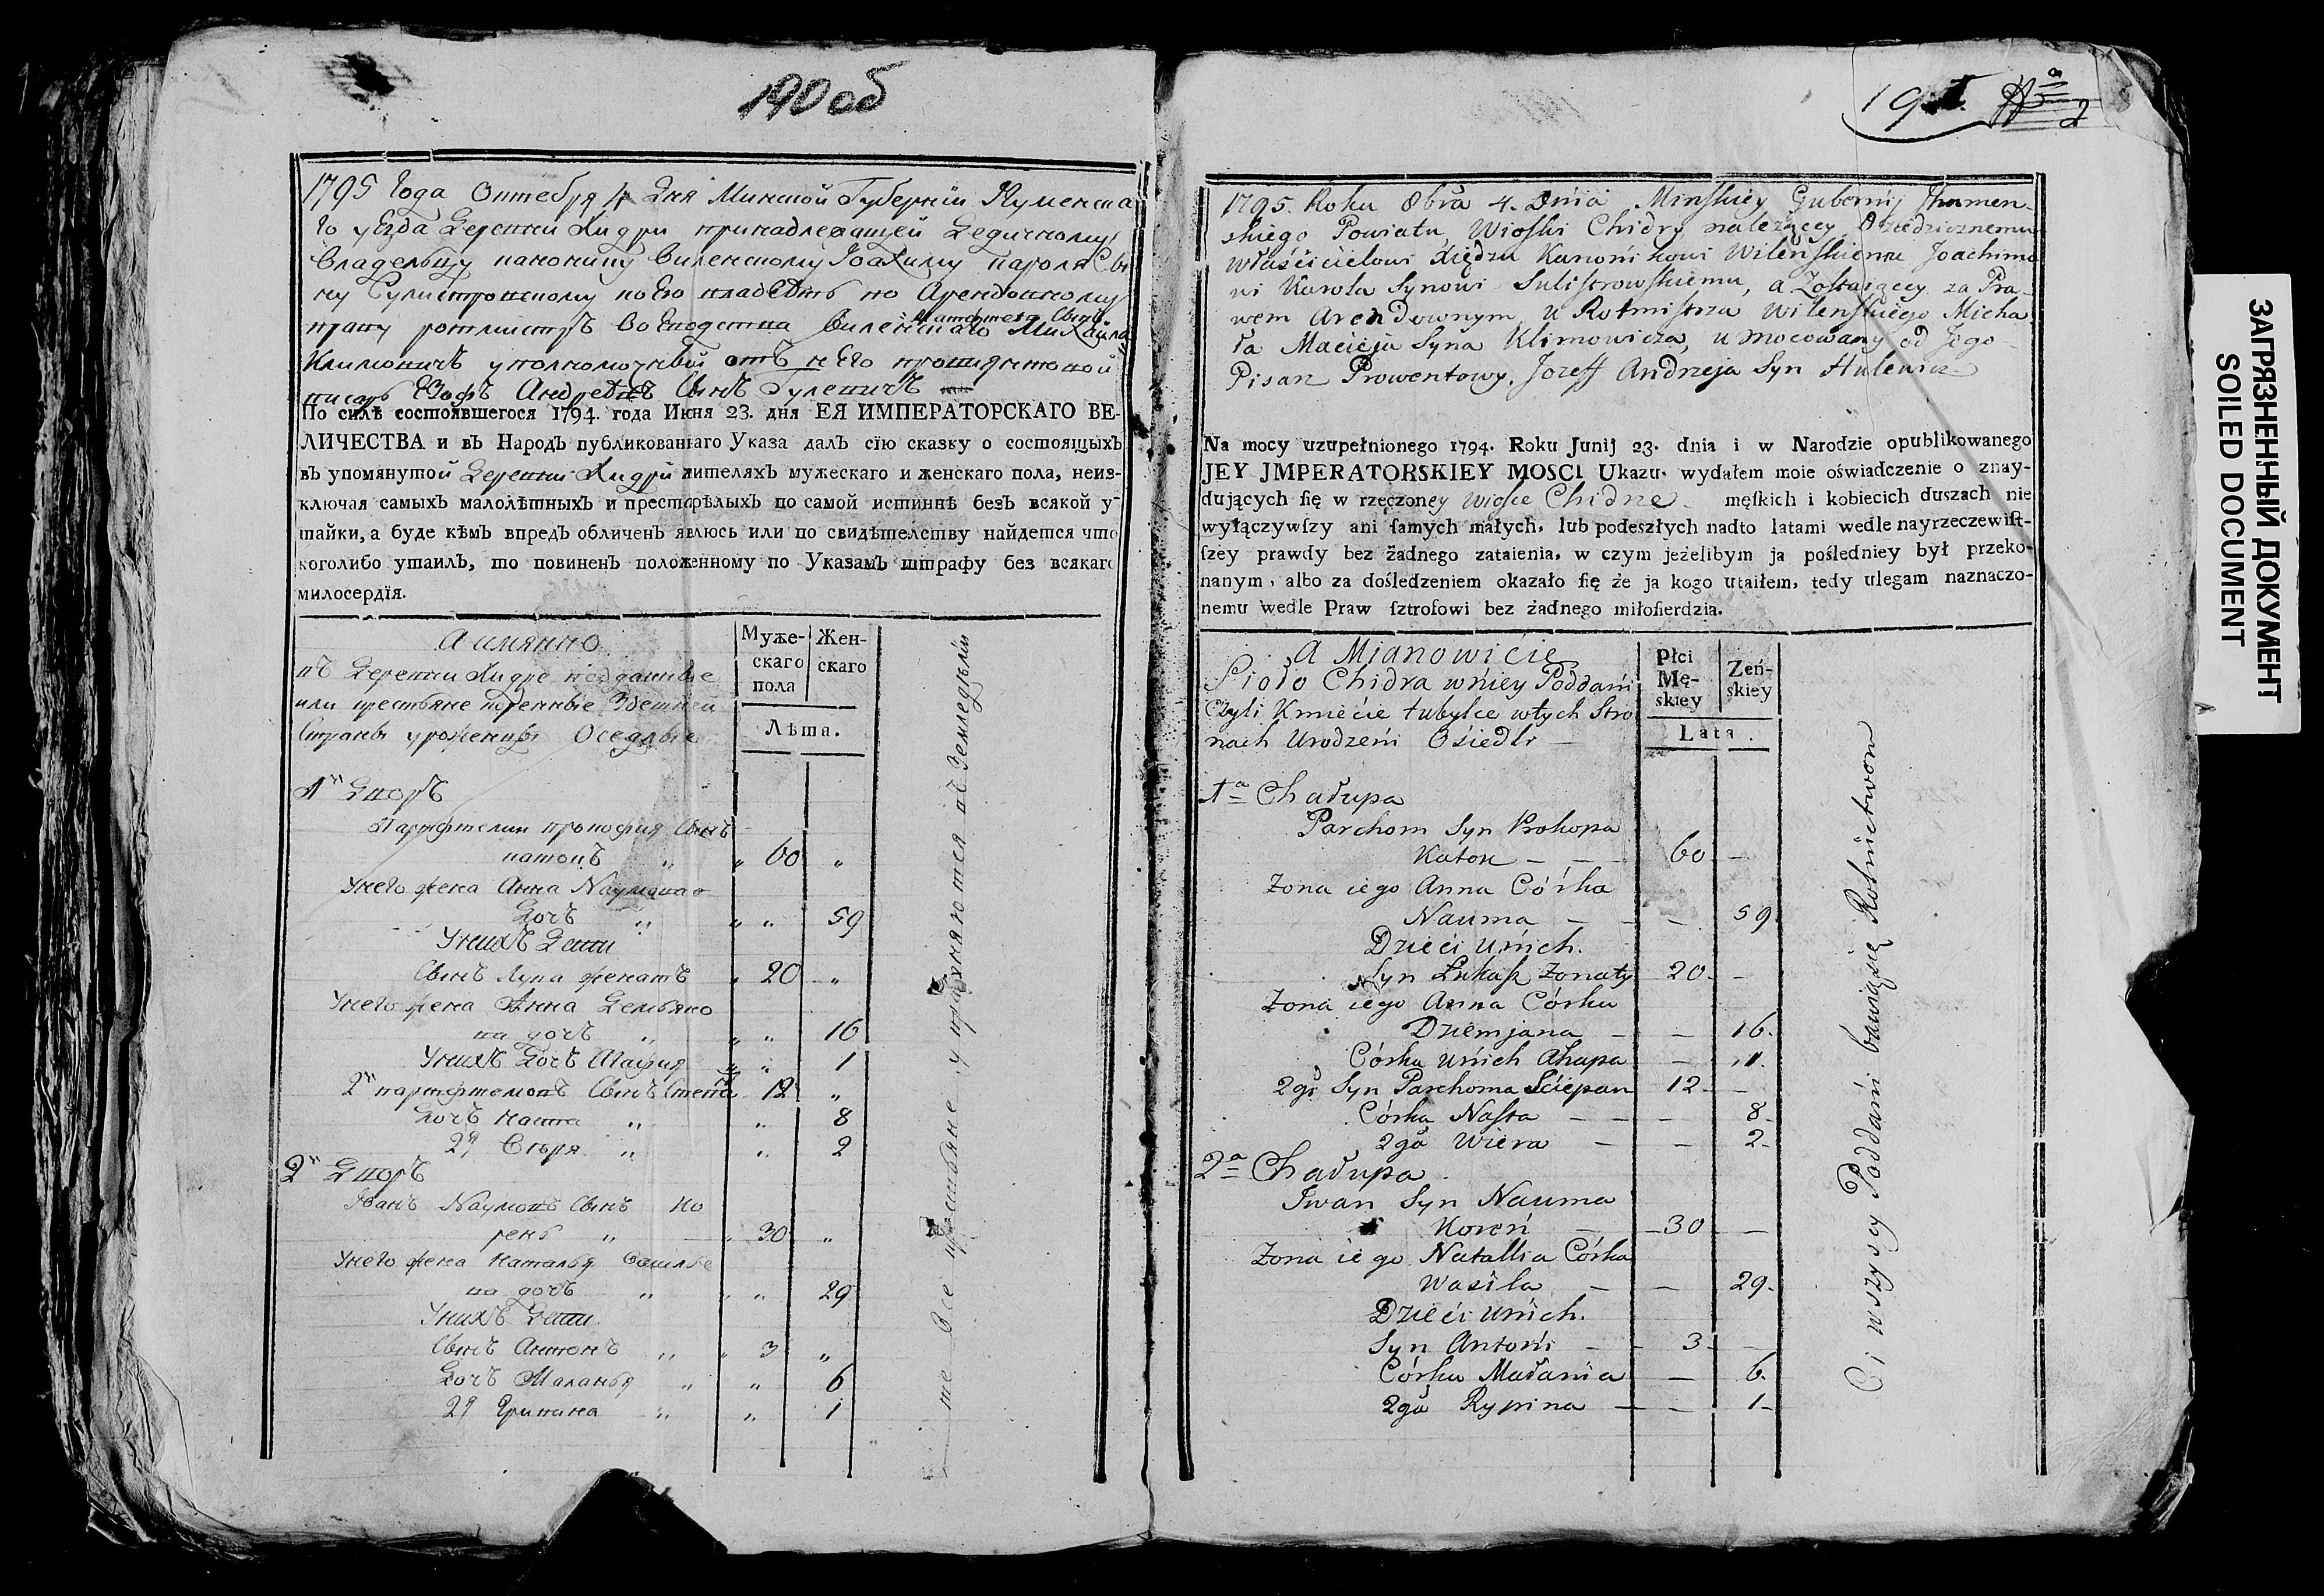 190 об
1795 Года Октебря 4 Дня Минской Губернїи Игуменска
го уезда Деревни Хидри принадлежащей Дедичному
Владельцу канонику Виленскому Іоахиму Кароля Сы
ну Сулистровскому по Его владеть по Арендовному
Матфтея Сына
праву ротмистръ Воеводства Виленскаго Михайла
Климовичъ уполномочный отъ него провиантовой
писарь Езофъ Андреевъ Сынъ Гулевичъ
По силѣ состоявшегося 1794. года Июня 23. дня ЕЯ ИМПЕРАТОРСКАГО ВЕ-
ЛИЧЕСТВА и въ Народъ публикованнаго Указа далъ сїю сказку о состоящыхъ
въ упомянутой Деревни Хидри жителяхъ мужескаго и женскаго пола, неиз-
ключая самыхъ малолѣтныхъ и престарѣлыхъ по самой истиннѣ безъ всякой у-
тайки, а буде кѣмъ впредъ обличенъ явлюсь или по свидѣтелству найдется что
коголибо утаилъ, то повиненъ положенному по Указамъ штрафу без всякаго
милосердїя.
а имянно
въ Деревни Хидре подданные
или крестьяне коренные Здешней
Страны уроженцы Оседлые
Муже-
скаго
пола
Жен-
скаго
Лѣта.
1й Дворъ
Партфтелин прокофия Сынъ
катокъ " " 60 "
Унего жена Анна Наумова
Дочь " " " 59
Унихъ Дети
Сынъ Лука женатъ " 20 "
Унего жена Анна Демьяно
ва дочь " " " 16
Унихъ Дочь Агафия " " 1
2й партфтемовъ Сынъ Степа 12 "
Дочь Наста " " 8
2я Вѣря " " 2
2й Дворъ
Іванъ Наумовъ Сынъ Ко
рень " " 30 "
Унего жена Наталья Василье
ва дочь " " " 29
Унихъ Дети
Сынъ Антонъ " " 3 "
Дочь Маланья " " 6
2я Грипина " " 1
те Все крестьяне упражняются въ Земледелїи
191.
1795. Roku 8bra 4. Dnia Minskiey Gubernij Ihumen-
skiego Powiatu, Wioski Chidry, należącey Dziedzicznemu
właścicielowi Xiędzu Kanonikowi Wileńskiemu Joachimo
wi Karola Synowi Sulistrowskiemu, a Zostaiącey za Pra-
wem Arendownym, u Rotmistrza Wilenskiego Micha
ła Macieja Syna Klimowicza, umocowany od Jego
Pisarz Prowentowy, Jozeff Andrzeja Syn Hulewicz
Na mocy uzupełnionego 1794. Roku Junij 23. dnia i w Narodzie opublikowanego
JEY JMPERATORSKIEY MOSCI Ukazu. wydałem moie oświadczenie o znay-
dujących ſię w rzeczoney wiosce Chidrze męſkich i kobiecich duszach nie
wyłączywſzy ani ſamych małych, lub podeszłych nadto latami wedle nayrzeczewiſt-
ſzey prawdy bez żadnego zataienia, w czym jeżelibym ja pośledniey był przeko-
nanym, albo za dośledzeniem okazało ſię że ja kogo utaiłem, tedy ulegam naznaczo-
nemu wedle Praw ſztrofowi bez żadnego miłoſierdzia.
A Mianowicie
Sioło Chidra wniey Poddani
Czyli Kmiecie tubylce wtych Stro
nach Urodzeni Osiedli —
płci
Mę-
skiey
Żeń-
skiey
Lata.
1a Chałupa
Parchom Syn Prokopa
Katok — — — 60 —
Zona iego Anna Córka
Nauma — — — 59
Dzieci unich.
Syn Łukasz Zonaty 20 —
Zona iego Anna Córka
Dziemjana — — 16.
Córka unich Ahapa — 1.
2gi Syn Parchoma Ściepan 12 —
Córka Nasta — — — 8
2ga Wiera — — 2
2a Chałupa
Iwan Syn Nauma
Koreń — 30 —
Zona iego Natallia Córka
Wasila — — 29
Dzieci unich.
Syn Antoni — 3 —
Córka Małania — 6.
2ga Rypina — — 1
Ci wszyscy Poddani bawią się Rolnictwem
ЗАГРЯЗНЕННЫЙ ДОКУМЕНТ
SOILED DOCUMENT